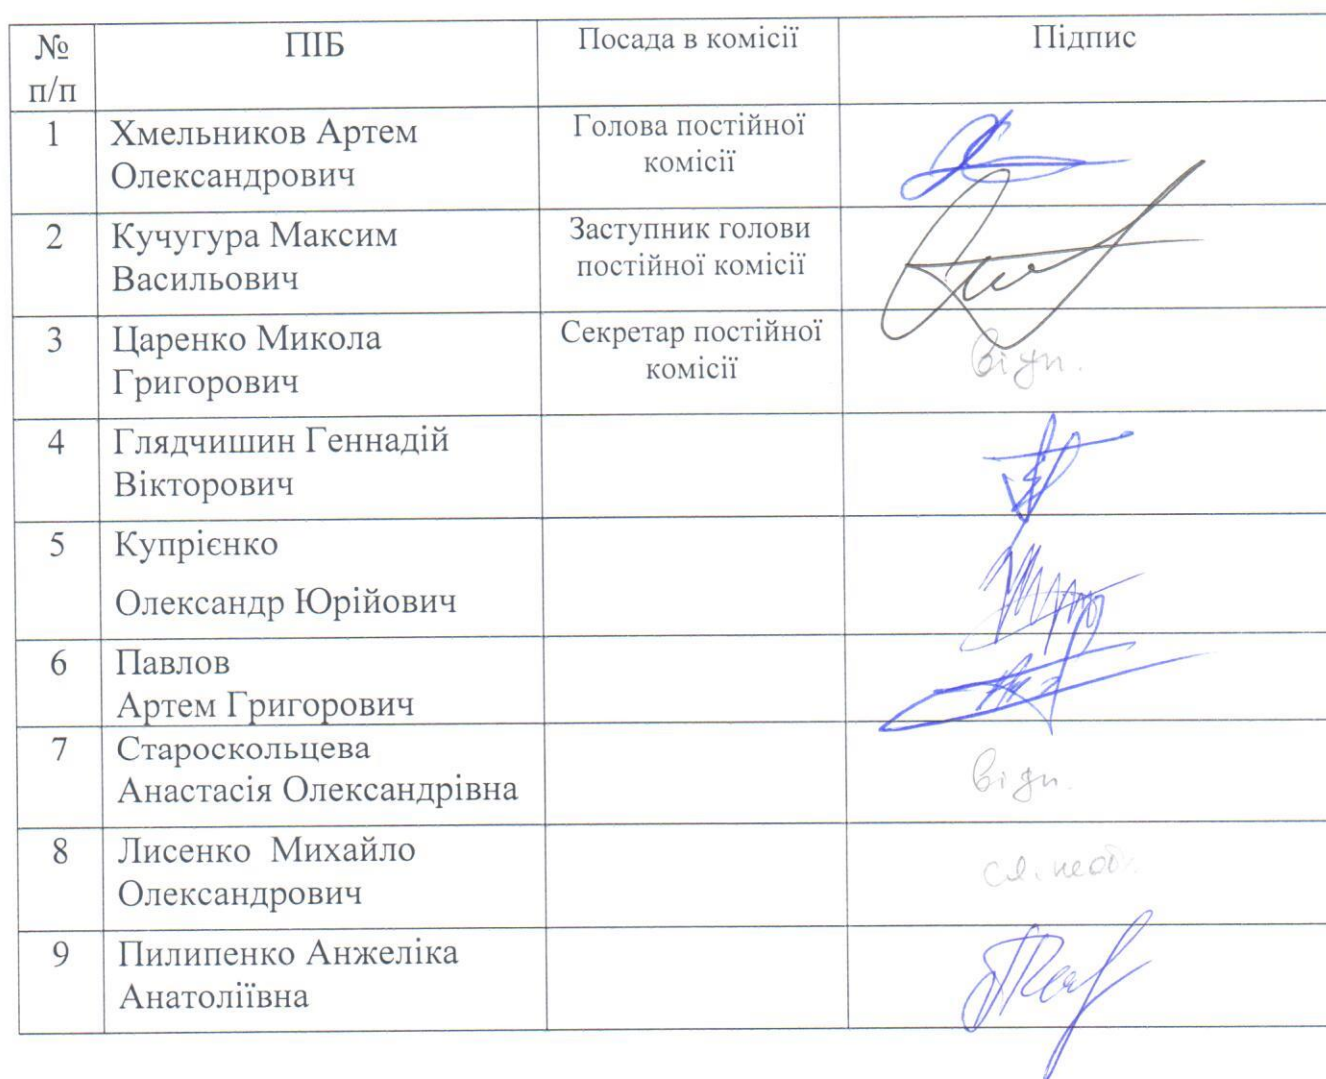 № п/п
ПІБ
Посада в комісії
Підпис
1
Хмельников Артем
Олександрович
Голова постійної
комісії
2
Кучугура Максим
Васильович
Заступник голови
постійної комісії
3
Царенко Микола
Григорович
Секретар постійної
комісії
відп.
4
Глядчишин Геннадій
Вікторович
5
Купрієнко
Олександр Юрійович
6
Павлов
Артем Григорович
7
Староскольцева
Анастасія Олександрівна
відп.
8
Лисенко Михайло
Олександрович
9
Пилипенко Анжеліка
Анатоліївна